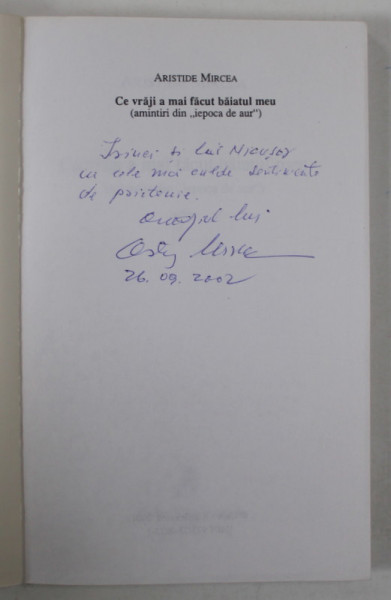 ARISTIDE MIRCEA
Ce vrăji a mai făcut băiatul meu
(amintiri din „iepoca de aur")
Irinei și lui Nicușor
cu cele mai calde sentimente
de prietenie.
lui
Mircea
26.09.2002